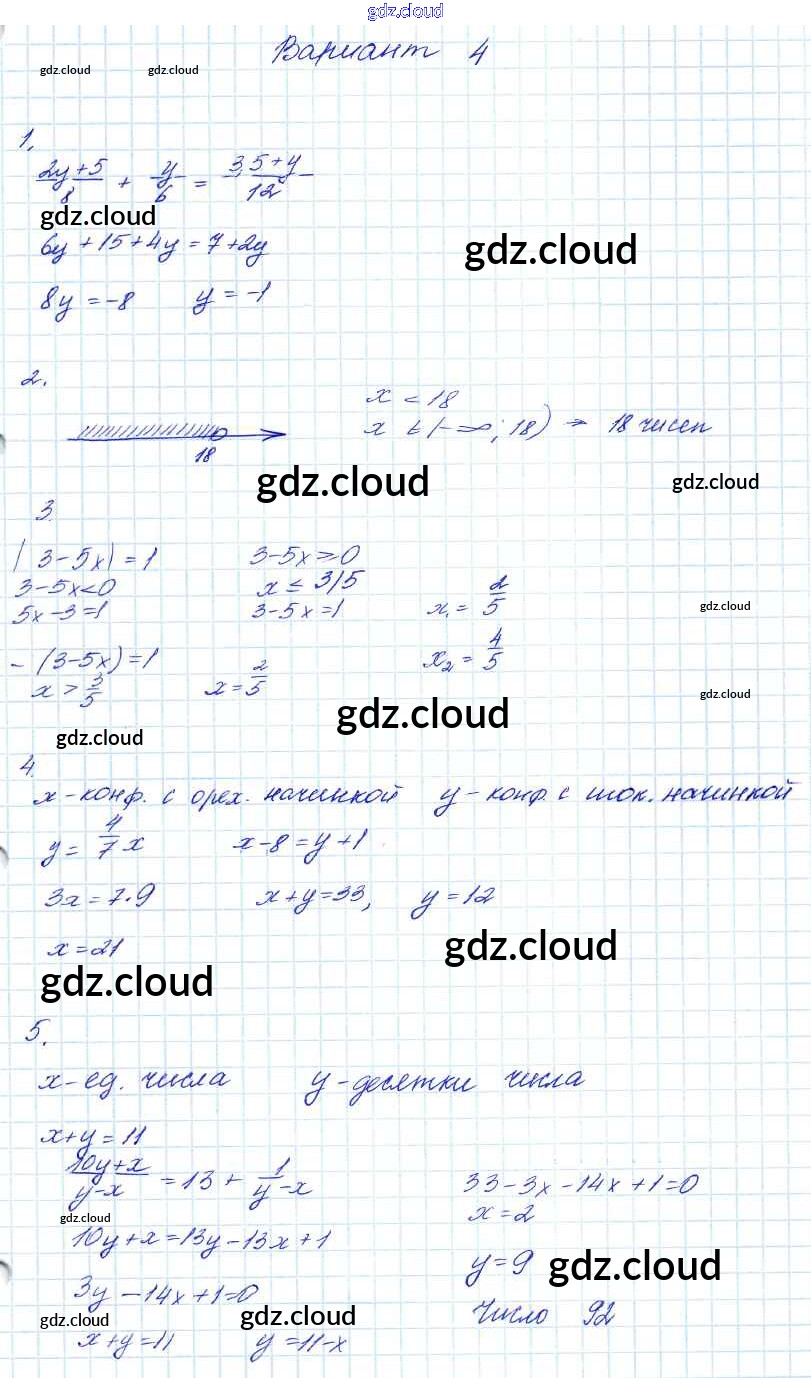 gdz.cloud
Вариант 4
gdz.cloud gdz.cloud
1.
(2y+5)/8 + y/6 = (3,5+y)/12
gdz.cloud
6y+15+4y=7+2y
gdz.cloud
8y=-8 y=-1
2.
x<18
x ∈(-∞; 18) → 18 чисел
18
gdz.cloud gdz.cloud
3.
|3-5x|=1 3-5x≥0
3-5x<0 x≤3/5
5x-3=1 3-5x=1 x₁=2/5
gdz.cloud
-(3-5x)=1 x₂=4/5
x>3/5 x=2/5
gdz.cloud
gdz.cloud
gdz.cloud
4.
x-конф. с орех. начинкой y-конф. с шок. начинкой
y=4/7x x-8=y+1
3x=7·9 x+y=33, y=12
x=21
gdz.cloud
gdz.cloud
5.
x-ед. числа y-десятки числа
x+y=11
(10y+x)/(y-x)=13+1/y-x 33-3x-14x+1=0
x=2
gdz.cloud
10y+x=13y-13x+1
y=9 gdz.cloud
3y-14x+1=0
Число 92
gdz.cloud gdz.cloud
x+y=11 y=11-x